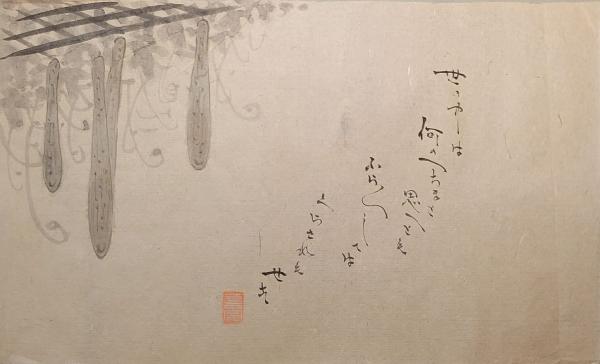 世の中は
何のへちまと
思へとも
ふらりとしては
くらされも
せす